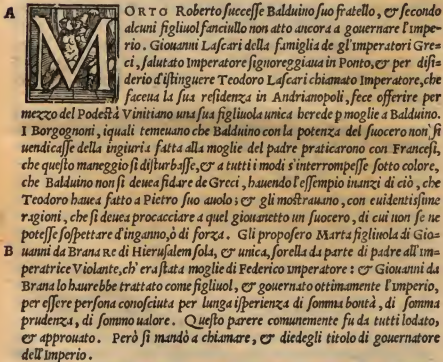 A
MORTO Roberto successe Balduino suo fratello, & secondo
alcuni figliuol fanciullo non atto ancora a gouernare l'impe-
rio. Giouanni Lascari della famiglia de gl'imperatori Gre-
ci, salutato Imperatore signoreggiaua in Ponto, & per disi-
derio d'istinguere Teodoro Lascari chiamato Imperatore, che
faceua la sua residenza in Andrianopoli, fece offerire per
mezzo del Podestà Vinitiano una sua figliuola unica herede p moglie a Balduino.
I Borgognoni, iquali temeuano che Balduino con la potenza del suocero non si
uendicasse della ingiuria fatta alla moglie del padre praticarono con Francesi,
che questo maneggio si disturbasse, & a tutti i modi s'interrompesse sotto colore,
che Balduino non si deuea fidare de Greci, hauendo l'essempio inanzi di ciò, che
Teodoro hauea fatto a Pietro suo auolo; & gli mostrauano, con euidentissime
ragioni, che si deuea procacciare a quel giouanetto un suocero, di cui non se ne
potesse sospettare d'inganno, ò di forza. Gli proposero Marta figliuola di Gio-
B uanni da Brana RE di Hierusalem sola, & unica, sorella da parte di padre all'im-
peratrice Violante, ch'era stata moglie di Federico imperatore: & Giouanni da
Brana lo haurebbe trattato come figliuol, & gouernato ottimamente l'imperio,
per essere persona conosciuta per lunga isperienza di somma bontà, di somma
prudenza, di sommo ualore. Questo parere comunemente fu da tutti lodato,
& approuato. Però si mandò a chiamare, & diedegli titolo di gouernatore
dell'Imperio.